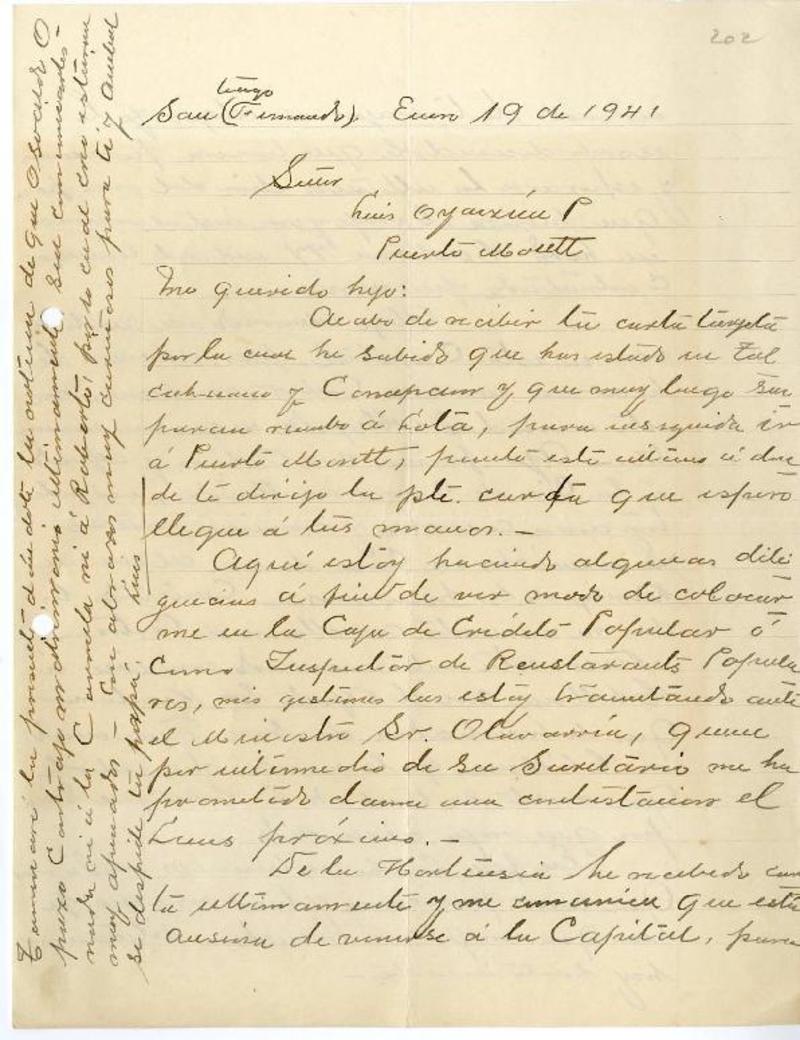 202
tiago
San (Fernando). Enero 19 de 1941
Señor
Luis Oyarzún P
Puerto Montt
Mo querido hijo:
Acabo de recibir tu carta tarjeta
por la cual he sabido que has estado en Tal
cahuano y Concepcion y que muy luego
rumbo á Lota, para enseguida ir
á Puerto Montt, punto este último á don
de te dirijo la pte. carta que espero
llegue á tus manos.—
Aquí estoy haciendo algunas dili
gencias á fin de ver modo de colocar
me en la Caja de Crédito Popular ó
como Inspector de Restaurants Popula
res, mis gestiones las estoy tramitando ante
el Ministro Sr. Olavarría, quien
por intermedio de su Secretario me ha
prometido darme una contestacion el
Lunes próximo.—
De la Hortensia he recibido car
ta ultimamente y me comunica que está
ansiosa de venirse á la Capital, para
Terminaré la presente dándote la noticia de que Osvaldo O
puzo Contrajo matrimonio ultimamente sin comunicarles—
nada ni á la Carmela ni á Roberto, por lo cual creo estarán
muy apenados — Con abrazos muy cariñosos para tí y Anibal
se despide tu papá.
Luis